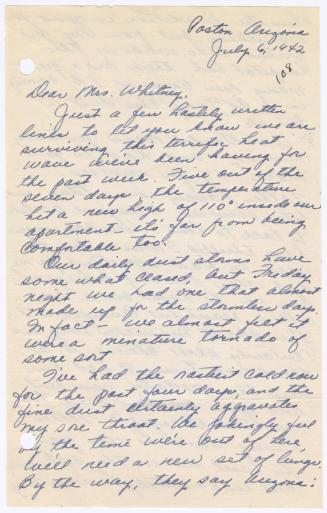 Poston Arizona
July 6, 1942
108
Dear Mrs. Whitney,
Just a few hastily written
lines to let you know we are
surviving this terrific heat
wave we've been having for
the past week. Five out of the
seven days, the temperature
hit a new high of 110° inside our
apartment - it's far from being
comfortable too.
Our daily dust storms have
some what ceased, but Friday
night we had one that almost
made up for the stormless days.
In fact - we almost felt it
were a menature tornado of
some sort.
I've had the nastiest cold now
for the past four days, and the
fine dust certainly aggravates
my sore throat. We jokingly feel
by the time we're out of here
we'll need a new set of lungs.
By the way, they say Arizona: